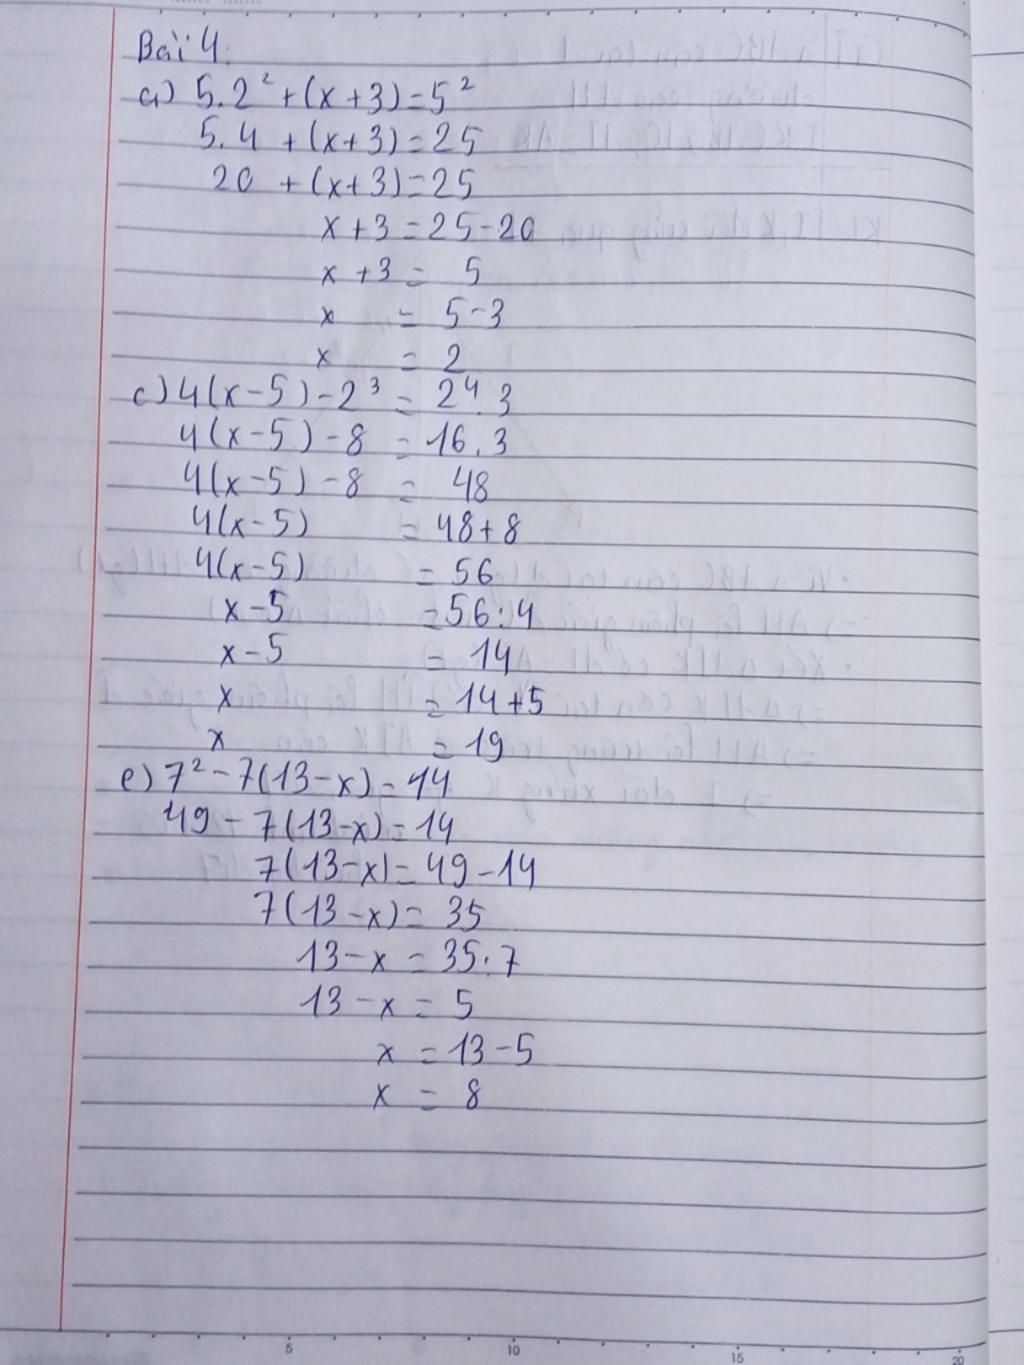 Bài 4:
a) 5.2² + (x + 3) = 5²
5.4 + (x + 3) = 25
20 + (x + 3) = 25
x + 3 = 25 - 20
x + 3 = 5
x = 5 - 3
x = 2
c) 4(x - 5) - 2³ = 2⁴.3
4(x - 5) - 8 = 16.3
4(x - 5) - 8 = 48
4(x - 5) = 48 + 8
4(x - 5) = 56
x - 5 = 56:4
x - 5 = 14
x = 14 + 5
x = 19
e) 7² - 7(13 - x) = 14
49 - 7(13 - x) = 14
7(13 - x) = 49 - 14
7(13 - x) = 35
13 - x = 35:7
13 - x = 5
x = 13 - 5
x = 8
5 10 15 20